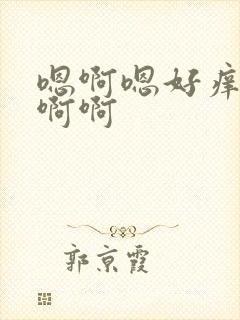 嗯啊嗯好痒
啊啊
郭京霞